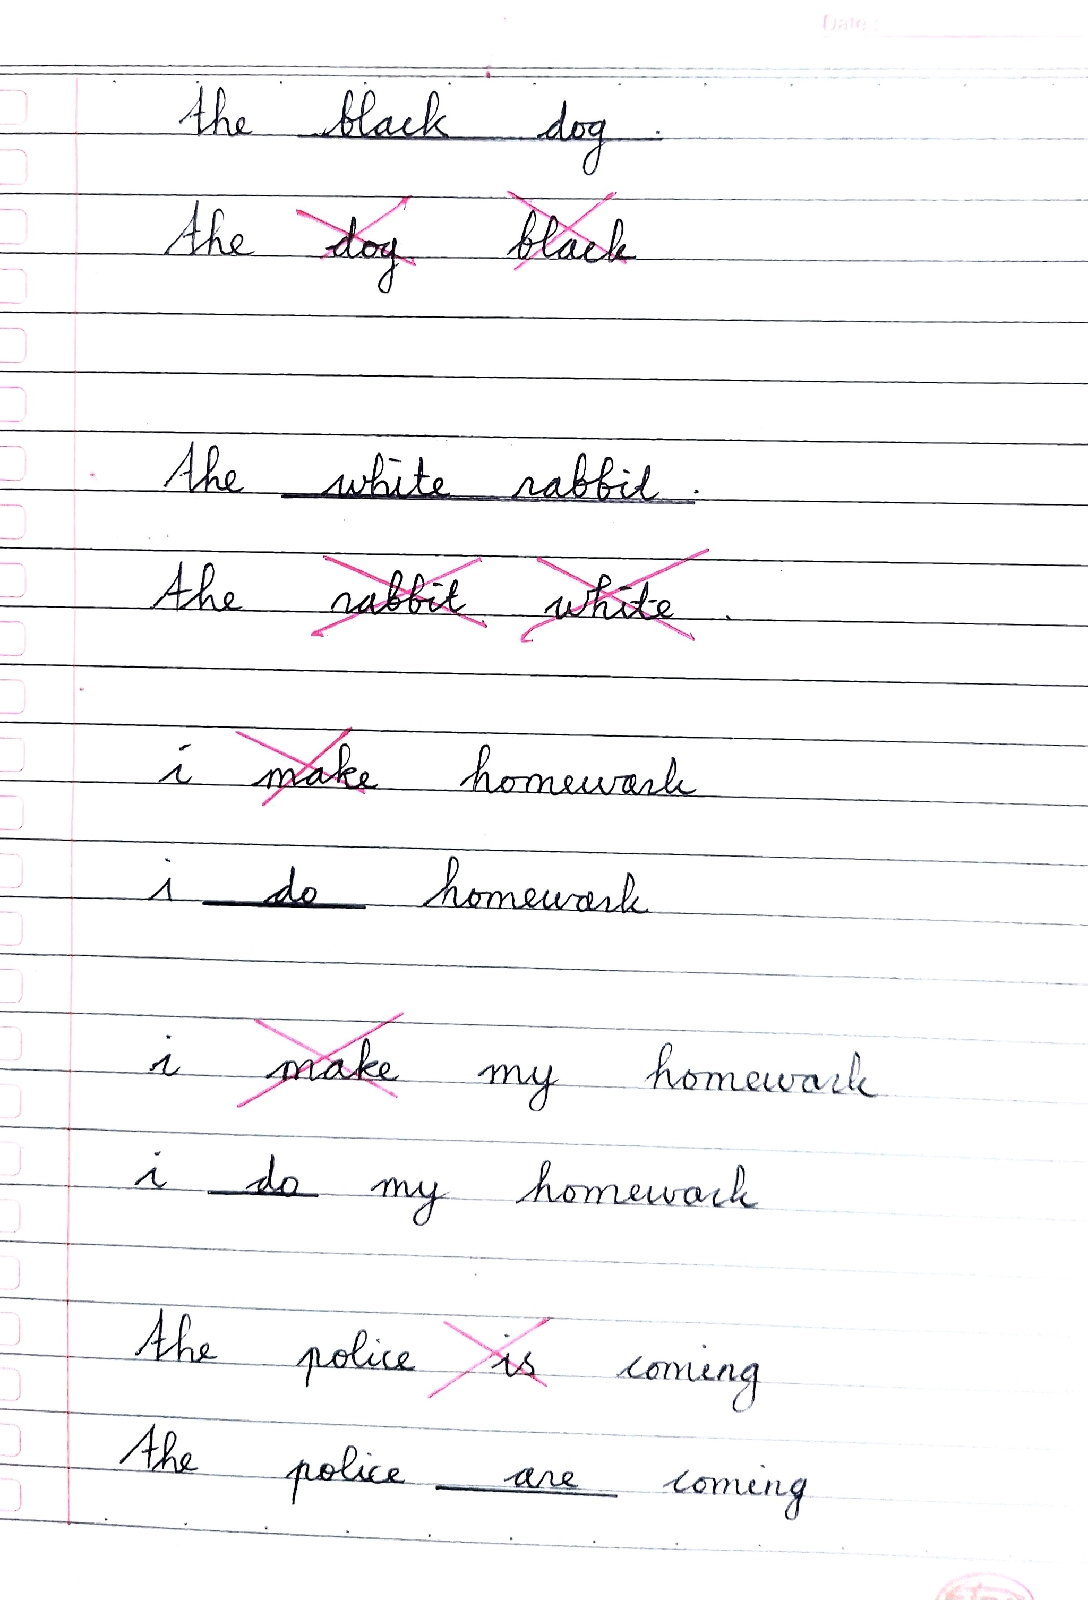 Date :
the black dog .
the dog black
the white rabbit .
the rabbit white .
i make homework
i do homework
i make my homework
i do my homework
the police is coming
the police are coming